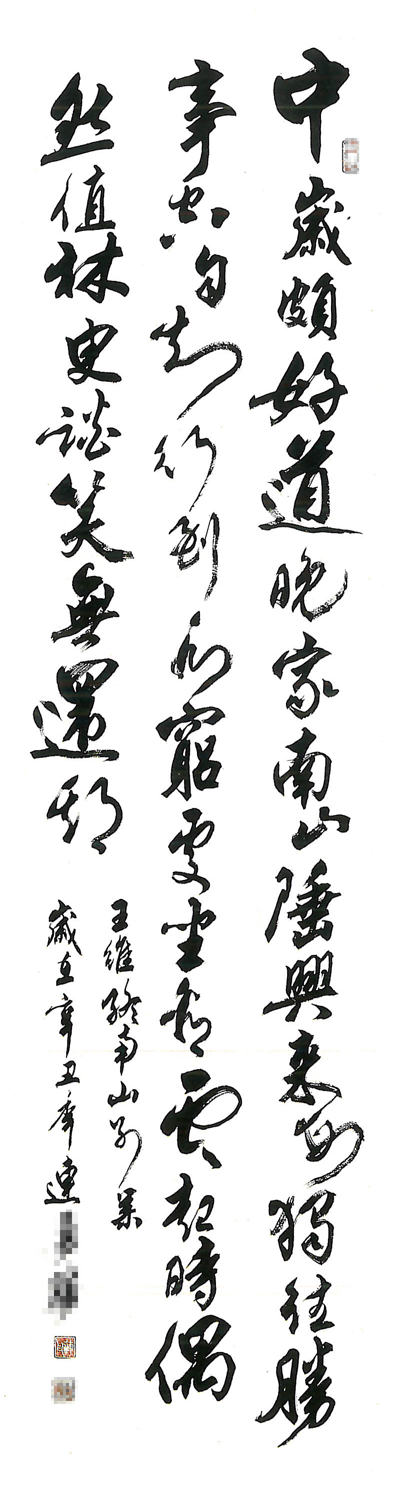 中歲頗好道晚家南山陲興來每獨往勝
事空自知行到水窮處坐看雲起時偶
然值林叟談笑無還期
王維終南山別業
歲在辛丑年連